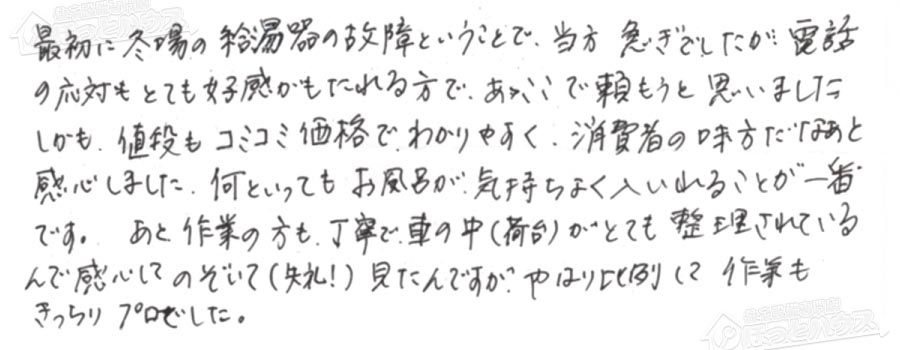 最初に冬場の給湯器の故障ということで、当方 急ぎでしたが 電話
の応対もとても好感がもたれる方で、あゝここで頼もうと思いました
しかも、値段もコミコミ価格で、わかりやすく、消費者の味方だなあと
感心しました。何といってもお風呂が気持ちよく入いれることが一番
です。 あと、作業の方も、丁寧で、車の中(荷台)がとても整理されている
んで感心して のぞいて(失礼!)見たんですが、やはり比例して 作業も
きっちり プロでした。
ほっとハウス